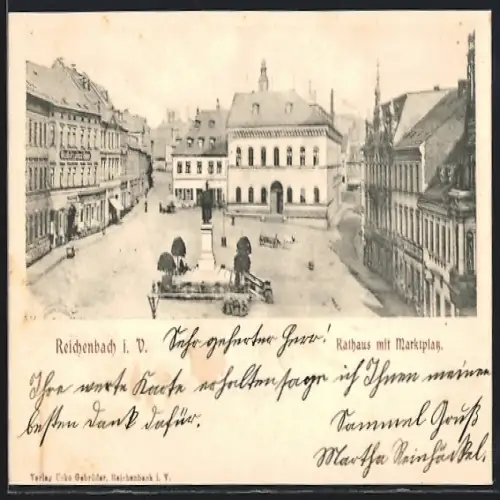 Reichenbach i. V.
Sehr geherter Herr!
Rathaus mit Marktplatz.
Ihre werte Karte erhalten sage ich Ihnen meinen
besten Dank dafür.
Sammel Gruß
Martha
Verlag Gebrüder, Reichenbach i. V.